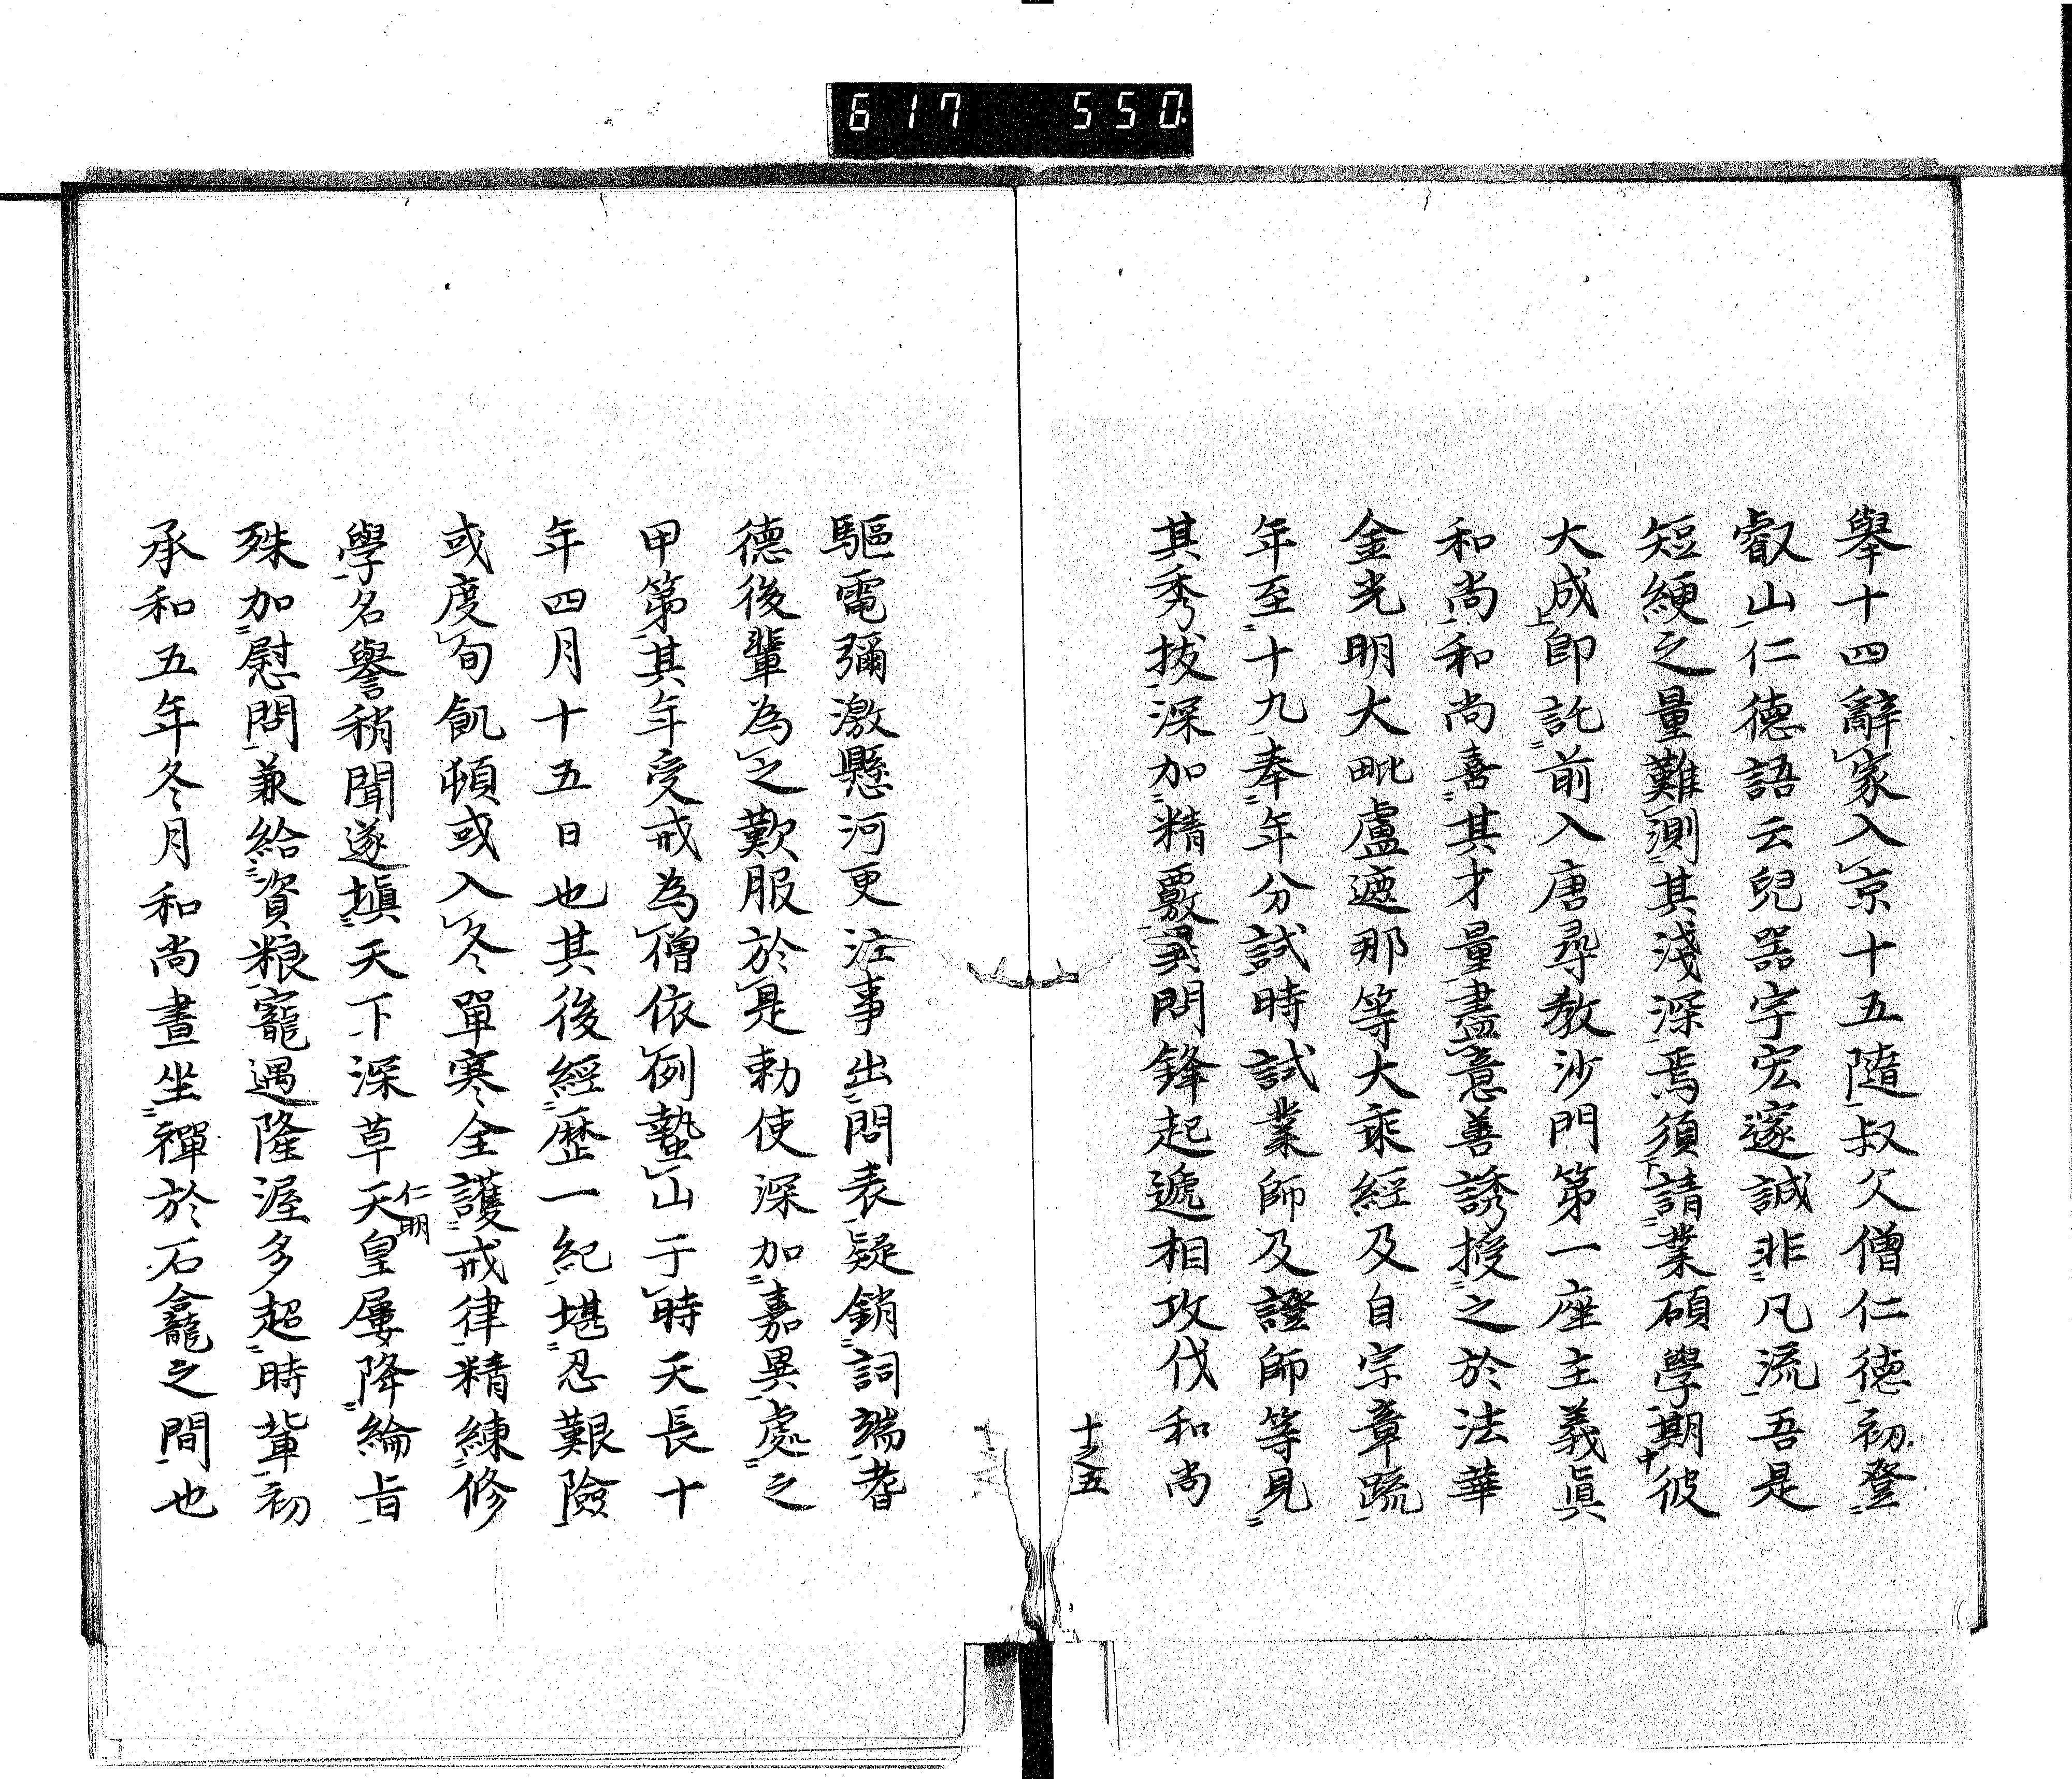 617 550
舉十四辭家入京十五隨叔父僧仁徳初登
叡山仁徳語云兒器宇宏邃誠非凡流吾是
短綆之量難測其淺深焉須請業碩學期彼
大成即託前入唐尋教沙門第一座主義眞
和尚和尚喜其才量盡意善誘授之於法華
金光明大毗盧遮那等大乘經及自宗章疏
年至十九奉年分試時試業師及證師等見
其秀拔深加精覈問鋒起遞相攻伐和尚
十之五
驅電彌激懸河更注事出問表疑銷詞端耆
德後輩為之歎服於是勅使深加嘉異處之
甲第其年受戒為僧依例蟄山于時天長十
年四月十五日也其後經歷一紀堪忍艱險
或度旬飢頓或入冬單寒全護戒律精練修
學名譽稍聞遂塡天下深草天皇屢降綸旨
仁明
殊加慰問兼給資粮寵遇隆渥多超時輩初
承和五年冬月和尚晝坐禪於石龕之間也